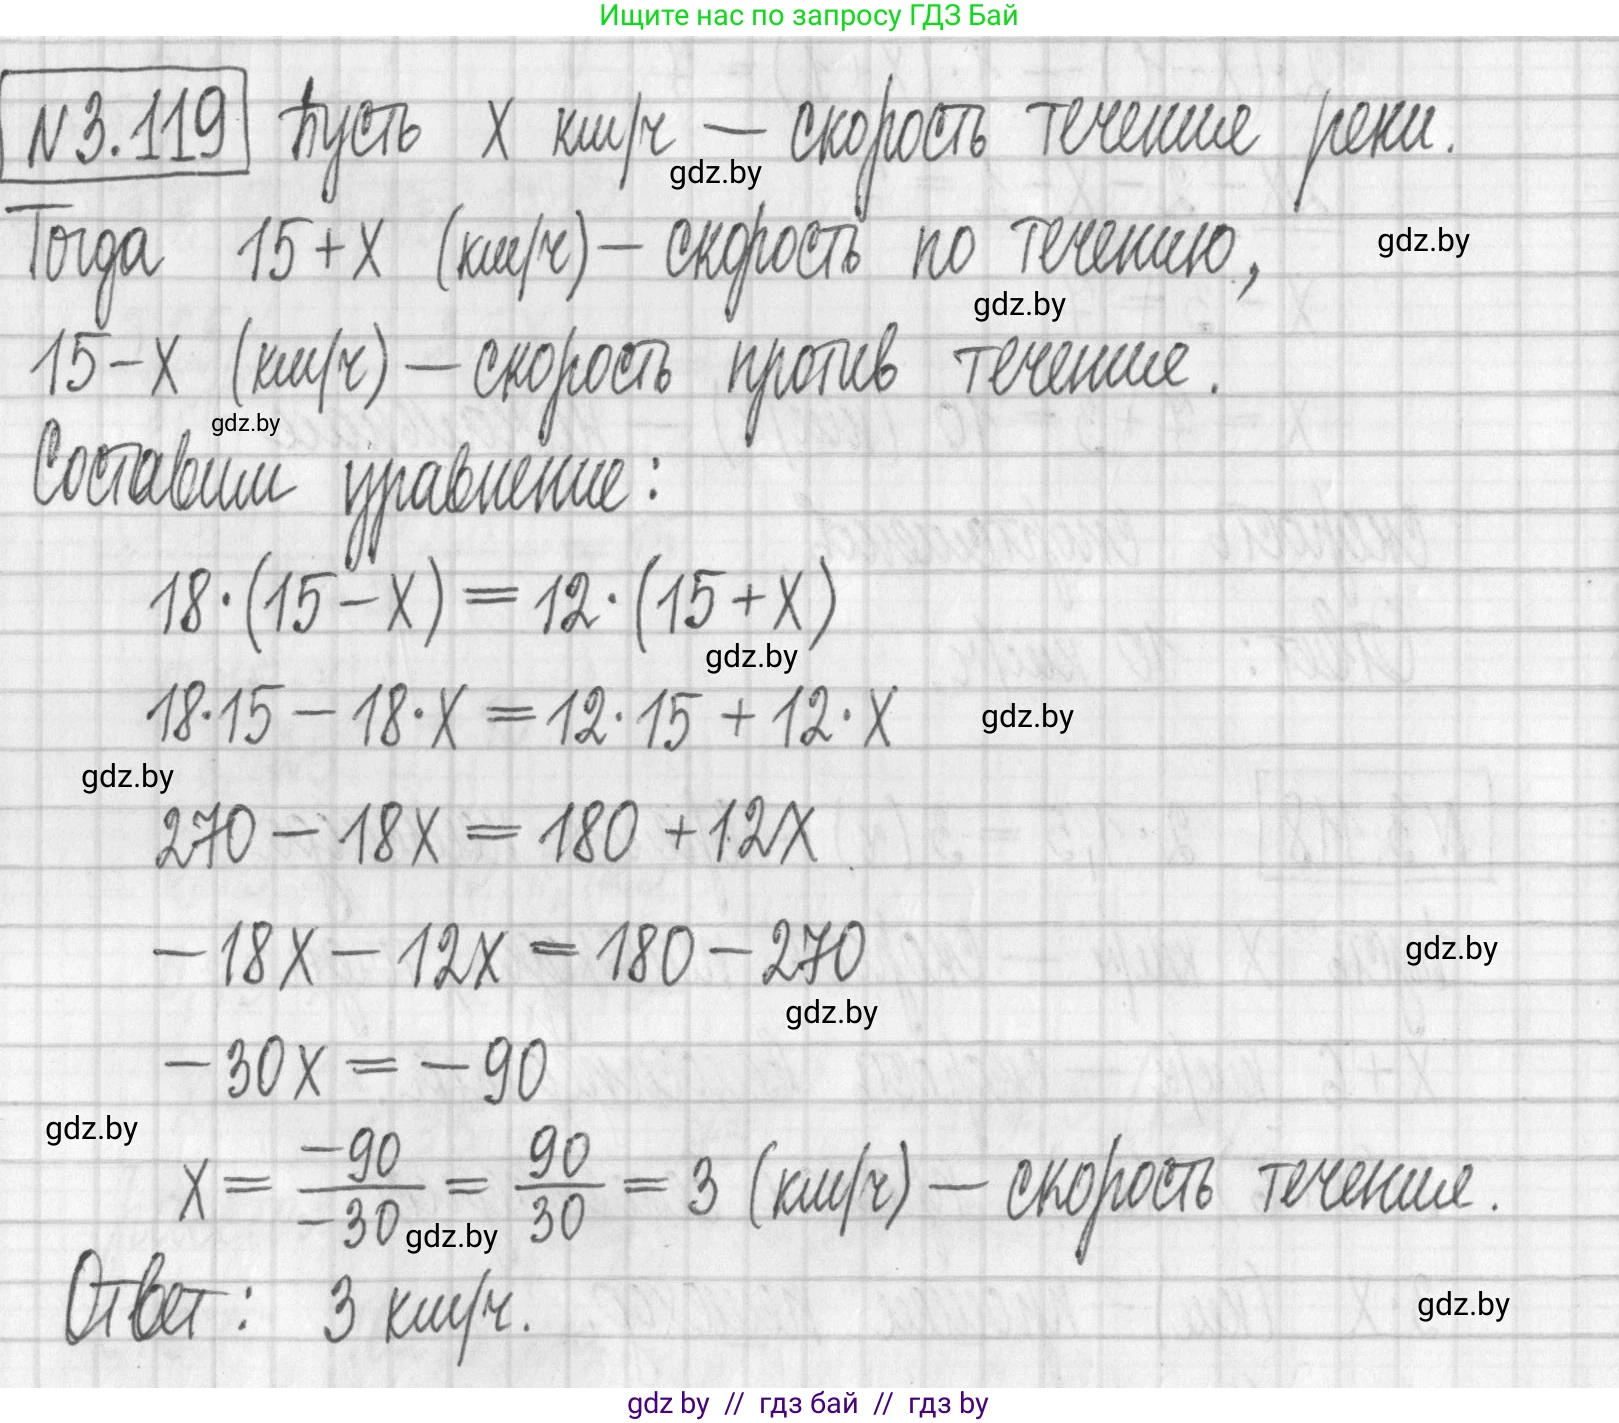 Ищите нас по запросу ГДЗ Бай
№3.119 Пусть x км/ч — скорость течение реки.
gdz.by
Тогда 15+x (км/ч) — скорость по течению,
gdz.by
gdz.by
15-x (км/ч) — скорость против течение.
gdz.by
Составим уравнение:
18·(15-x)=12·(15+x)
gdz.by
18·15-18·x=12·15+12·x
gdz.by
gdz.by
270-18x=180+12x
-18x-12x=180-270
gdz.by
gdz.by
-30x=-90
gdz.by
x = -90/-30 = 90/30 = 3 (км/ч) — скорость течения.
gdz.by
Ответ: 3 км/ч.
gdz.by
gdz by // гдз бай // гдз by